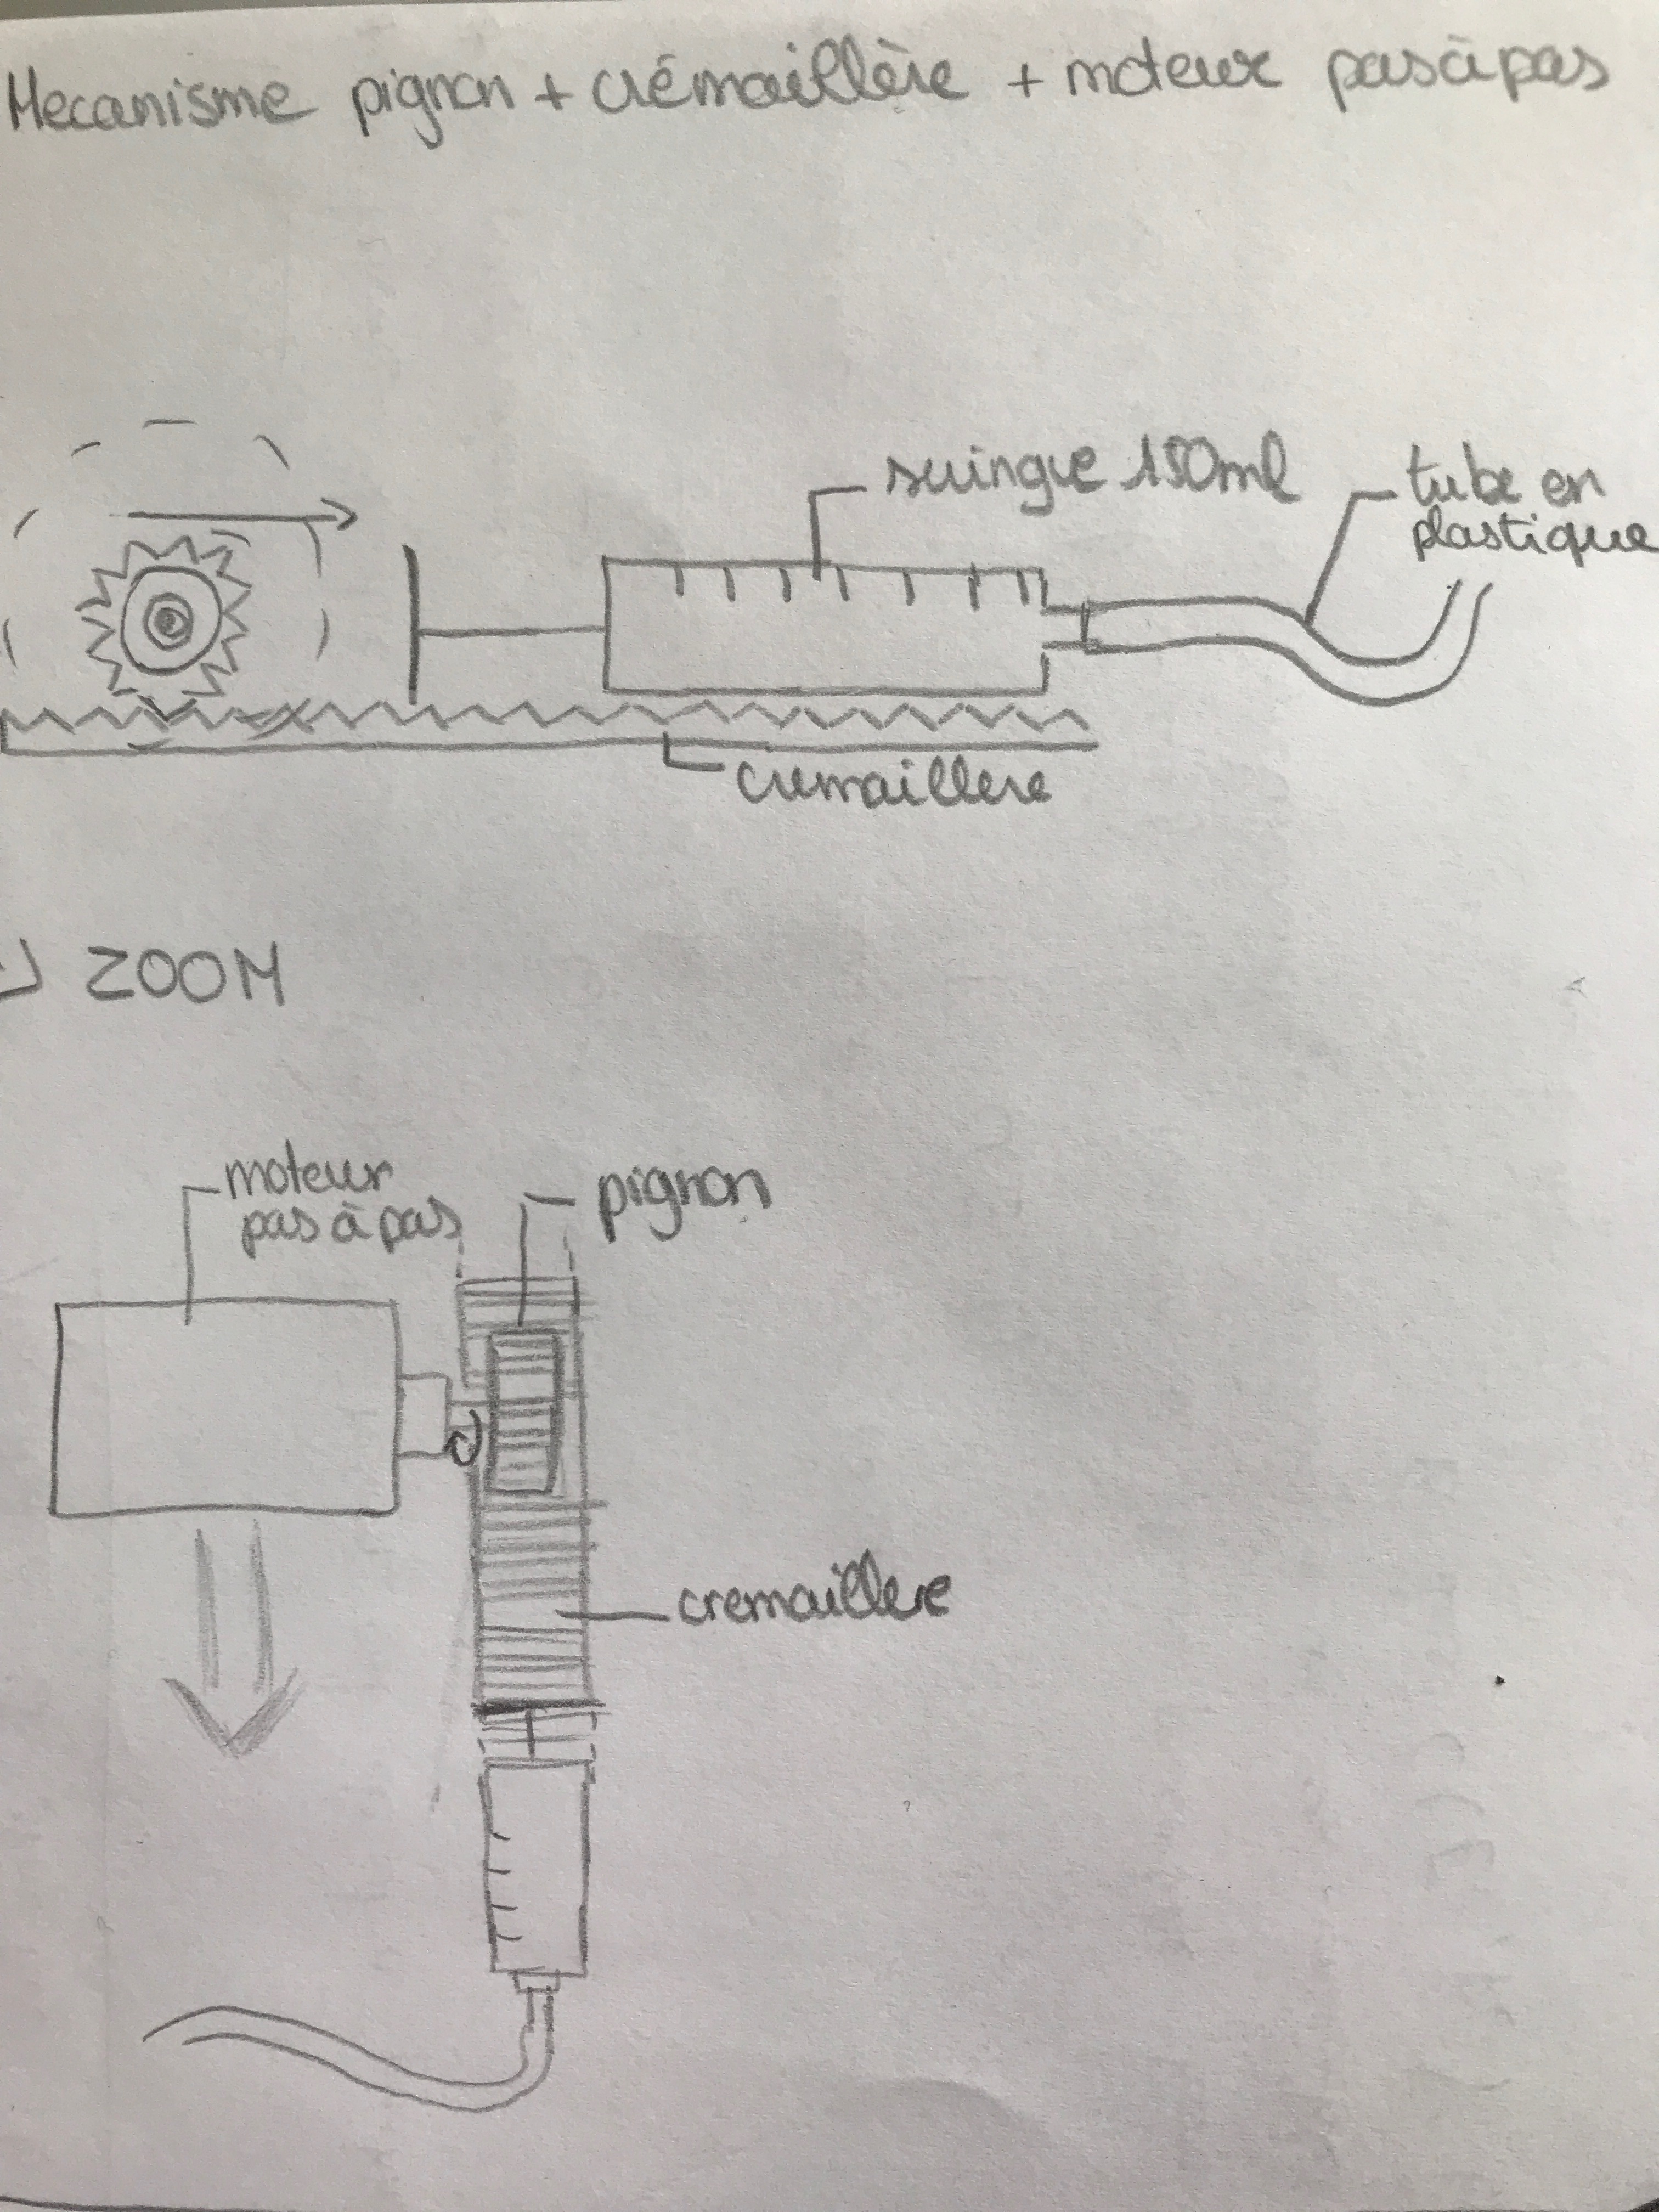 Mecanisme pignon + crémaillère + moteur pas à pas
seringue 150ml
tube en
plastique
cremaillere
ZOOM
moteur
pas à pas
pignon
cremaillere